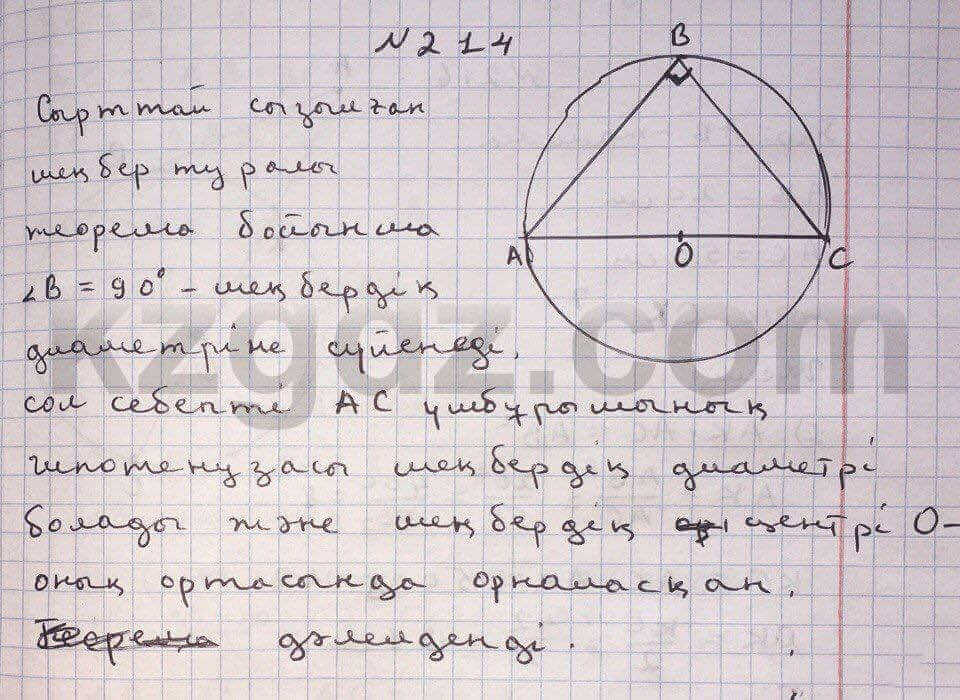 N 214
Сырттай сызылған
шеңбер туралы
теорема бойынша
∠B = 90° - шеңбердің
диаметріне сүйенеді,
сол себепті AC үшбұрышының
гипотенузасы шеңбердің диаметрі
болады және шеңбердің центрі O-
оның ортасында орналасқан.
Теорема дәлелденді.
B
A
O
C
kzgdz.com